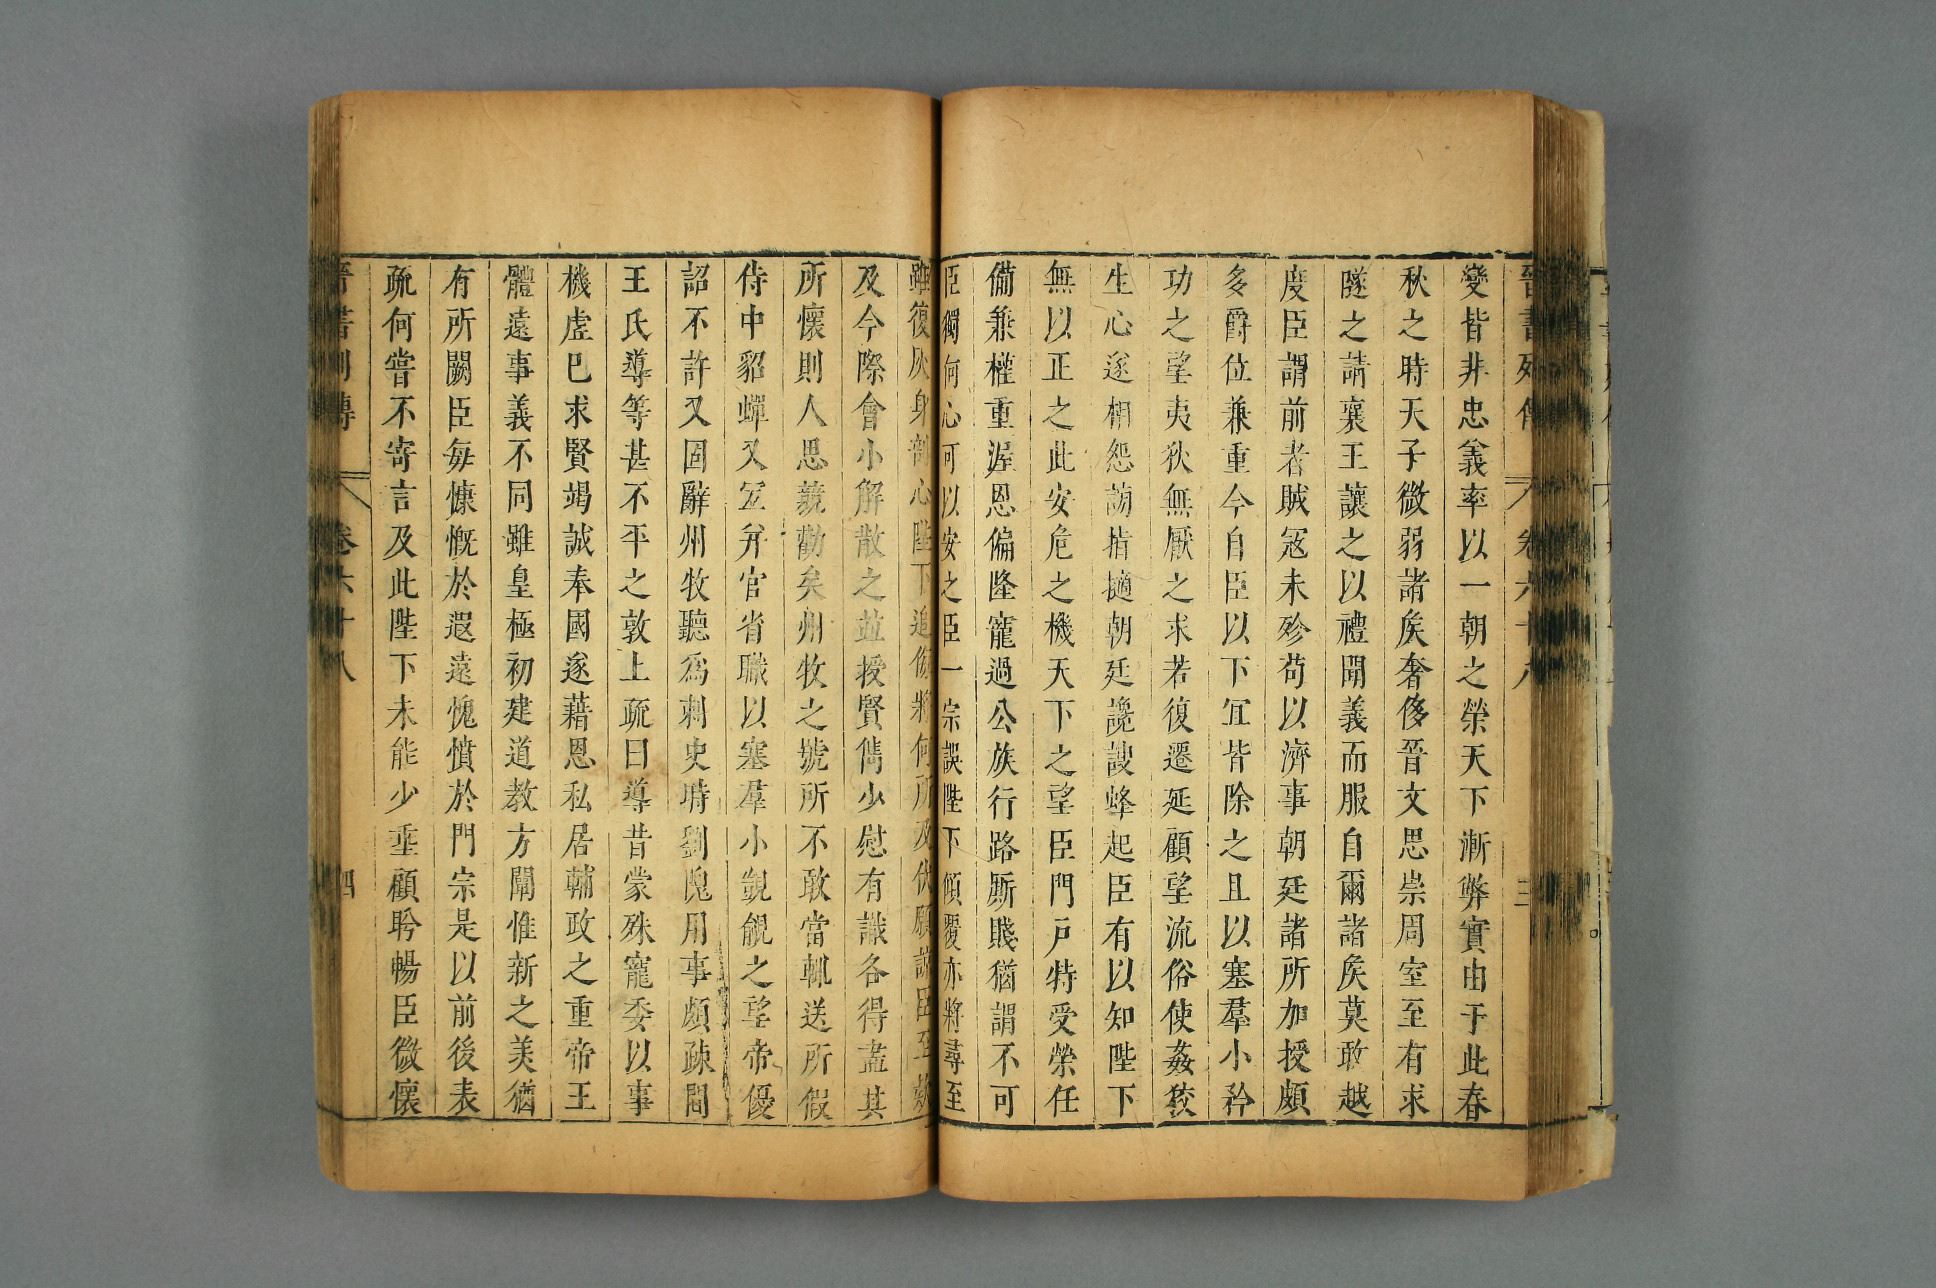 晉書列傳 卷六十八 三
變皆非忠義率以一朝之榮天下漸弊實由于此春
秋之時天子微弱諸矦奢侈晉文思崇周室至有求
隧之請襄王讓之以禮聞義而服自爾諸矦莫敢越
度臣謂前者賊寇未殄苟以濟事朝廷諸所加授頗
多爵位兼重今自臣以下冝皆除之且以塞羣小矜
功之望夷狄無厭之求若復遷延顧望流俗使姦狡
生心遂相怨謗指擿朝廷讒諛蜂起臣有以知陛下
無以正之此安危之機天下之望臣門戸特受榮任
備兼權重渥恩偏隆寵過公族行路厮賤猶謂不可
臣獨何心可以安之臣一宗誤陛下傾覆亦將尋至
雖復灰身剖心陛下追悔將何所及伏願諒臣至款
及今際會小解散之並授賢儁少慰有識各得盡其
所懷則人思競勸矣州牧之號所不敢當輒送所假
侍中貂蟬又冝并官省職以塞羣小覬覦之望帝優
詔不許又固辭州牧聽爲刺史時劉隗用事頗疎間
王氏導等甚不平之敦上疏曰導昔蒙殊寵委以事
機虛已求賢竭誠奉國遂藉恩私居輔政之重帝王
體遠事義不同雖皇極初建道教方闡惟新之美猶
有所闕臣每慷慨於遐遠愧憤於門宗是以前後表
疏何嘗不寄言及此陛下未能少埀顧眄暢臣微懷
晉書列傳 卷六十八 四